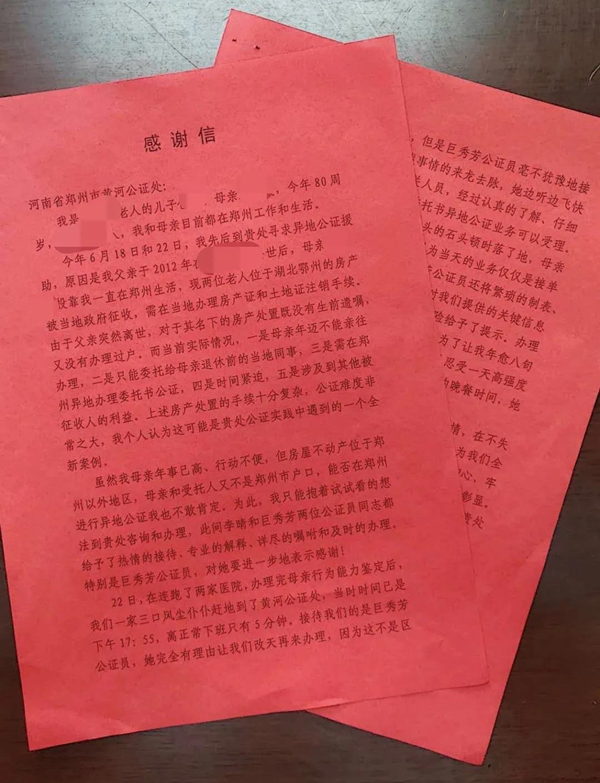 感谢信
河南省郑州市黄河公证处：
我是 老人的儿子 母亲 ，今年 80 周
岁， 人，我和母亲目前都在郑州工作和生活。
今年 6 月 18 日和 22 日，我先后到贵处寻求异地公证援
助，原因是我父亲于 2012 年 世后，母亲
投靠我一直在郑州生活，现两位老人位于湖北鄂州的房产
被当地政府征收，需在当地办理房产证和土地证注销手续。
由于父亲突然离世，对于其名下的房产处置既没有生前遗嘱，
又没有办理过户。而当前实际情况，一是母亲年迈不能亲往
办理，二是只能委托给母亲退休前的当地同事，三是需在郑
州异地办理委托书公证，四是时间紧迫，五是涉及到其他被
征收人的利益。上述房产处置的手续十分复杂，公证难度非
常之大，我个人认为这可能是贵处公证实践中遇到的一个全
新案例。
虽然我母亲年事已高、行动不便，但房屋不动产位于郑
州以外地区，母亲和受托人又不是郑州市户口，能否在郑州
进行异地公证我也不敢肯定。为此，我只能抱着试试看的想
法到贵处咨询和办理，此间李晴和巨秀芳两位公证员同志都
给予了热情的接待、专业的解释、详尽的嘱咐和及时的办理。
特别是巨秀芳公证员，对她要进一步地表示感谢！
22 日，在连跑了两家医院，办理完母亲行为能力鉴定后，
我们一家三口风尘仆仆赶地到了黄河公证处，当时时间已是
下午 17：55，离正常下班只有 5 分钟。接待我们的是巨秀芳
公证员，她完全有理由让我们改天再来办理，因为这不是区
，但是巨秀芳公证员毫不犹豫地接
事情的来龙去脉，她边听边飞快
人员，经过认真的了解、仔细
托书异地公证业务可以受理。
头的石头顿时落了地，母亲
为当天的业务仅仅是接单
公证员还将繁琐的制表、
对我们提供的关键信息
险给予了提示。办理
为了让我年愈八旬
忍受一天高强度
的晚餐时间，她
情，在不失
为我们全
心，牢
彰显。
贵处